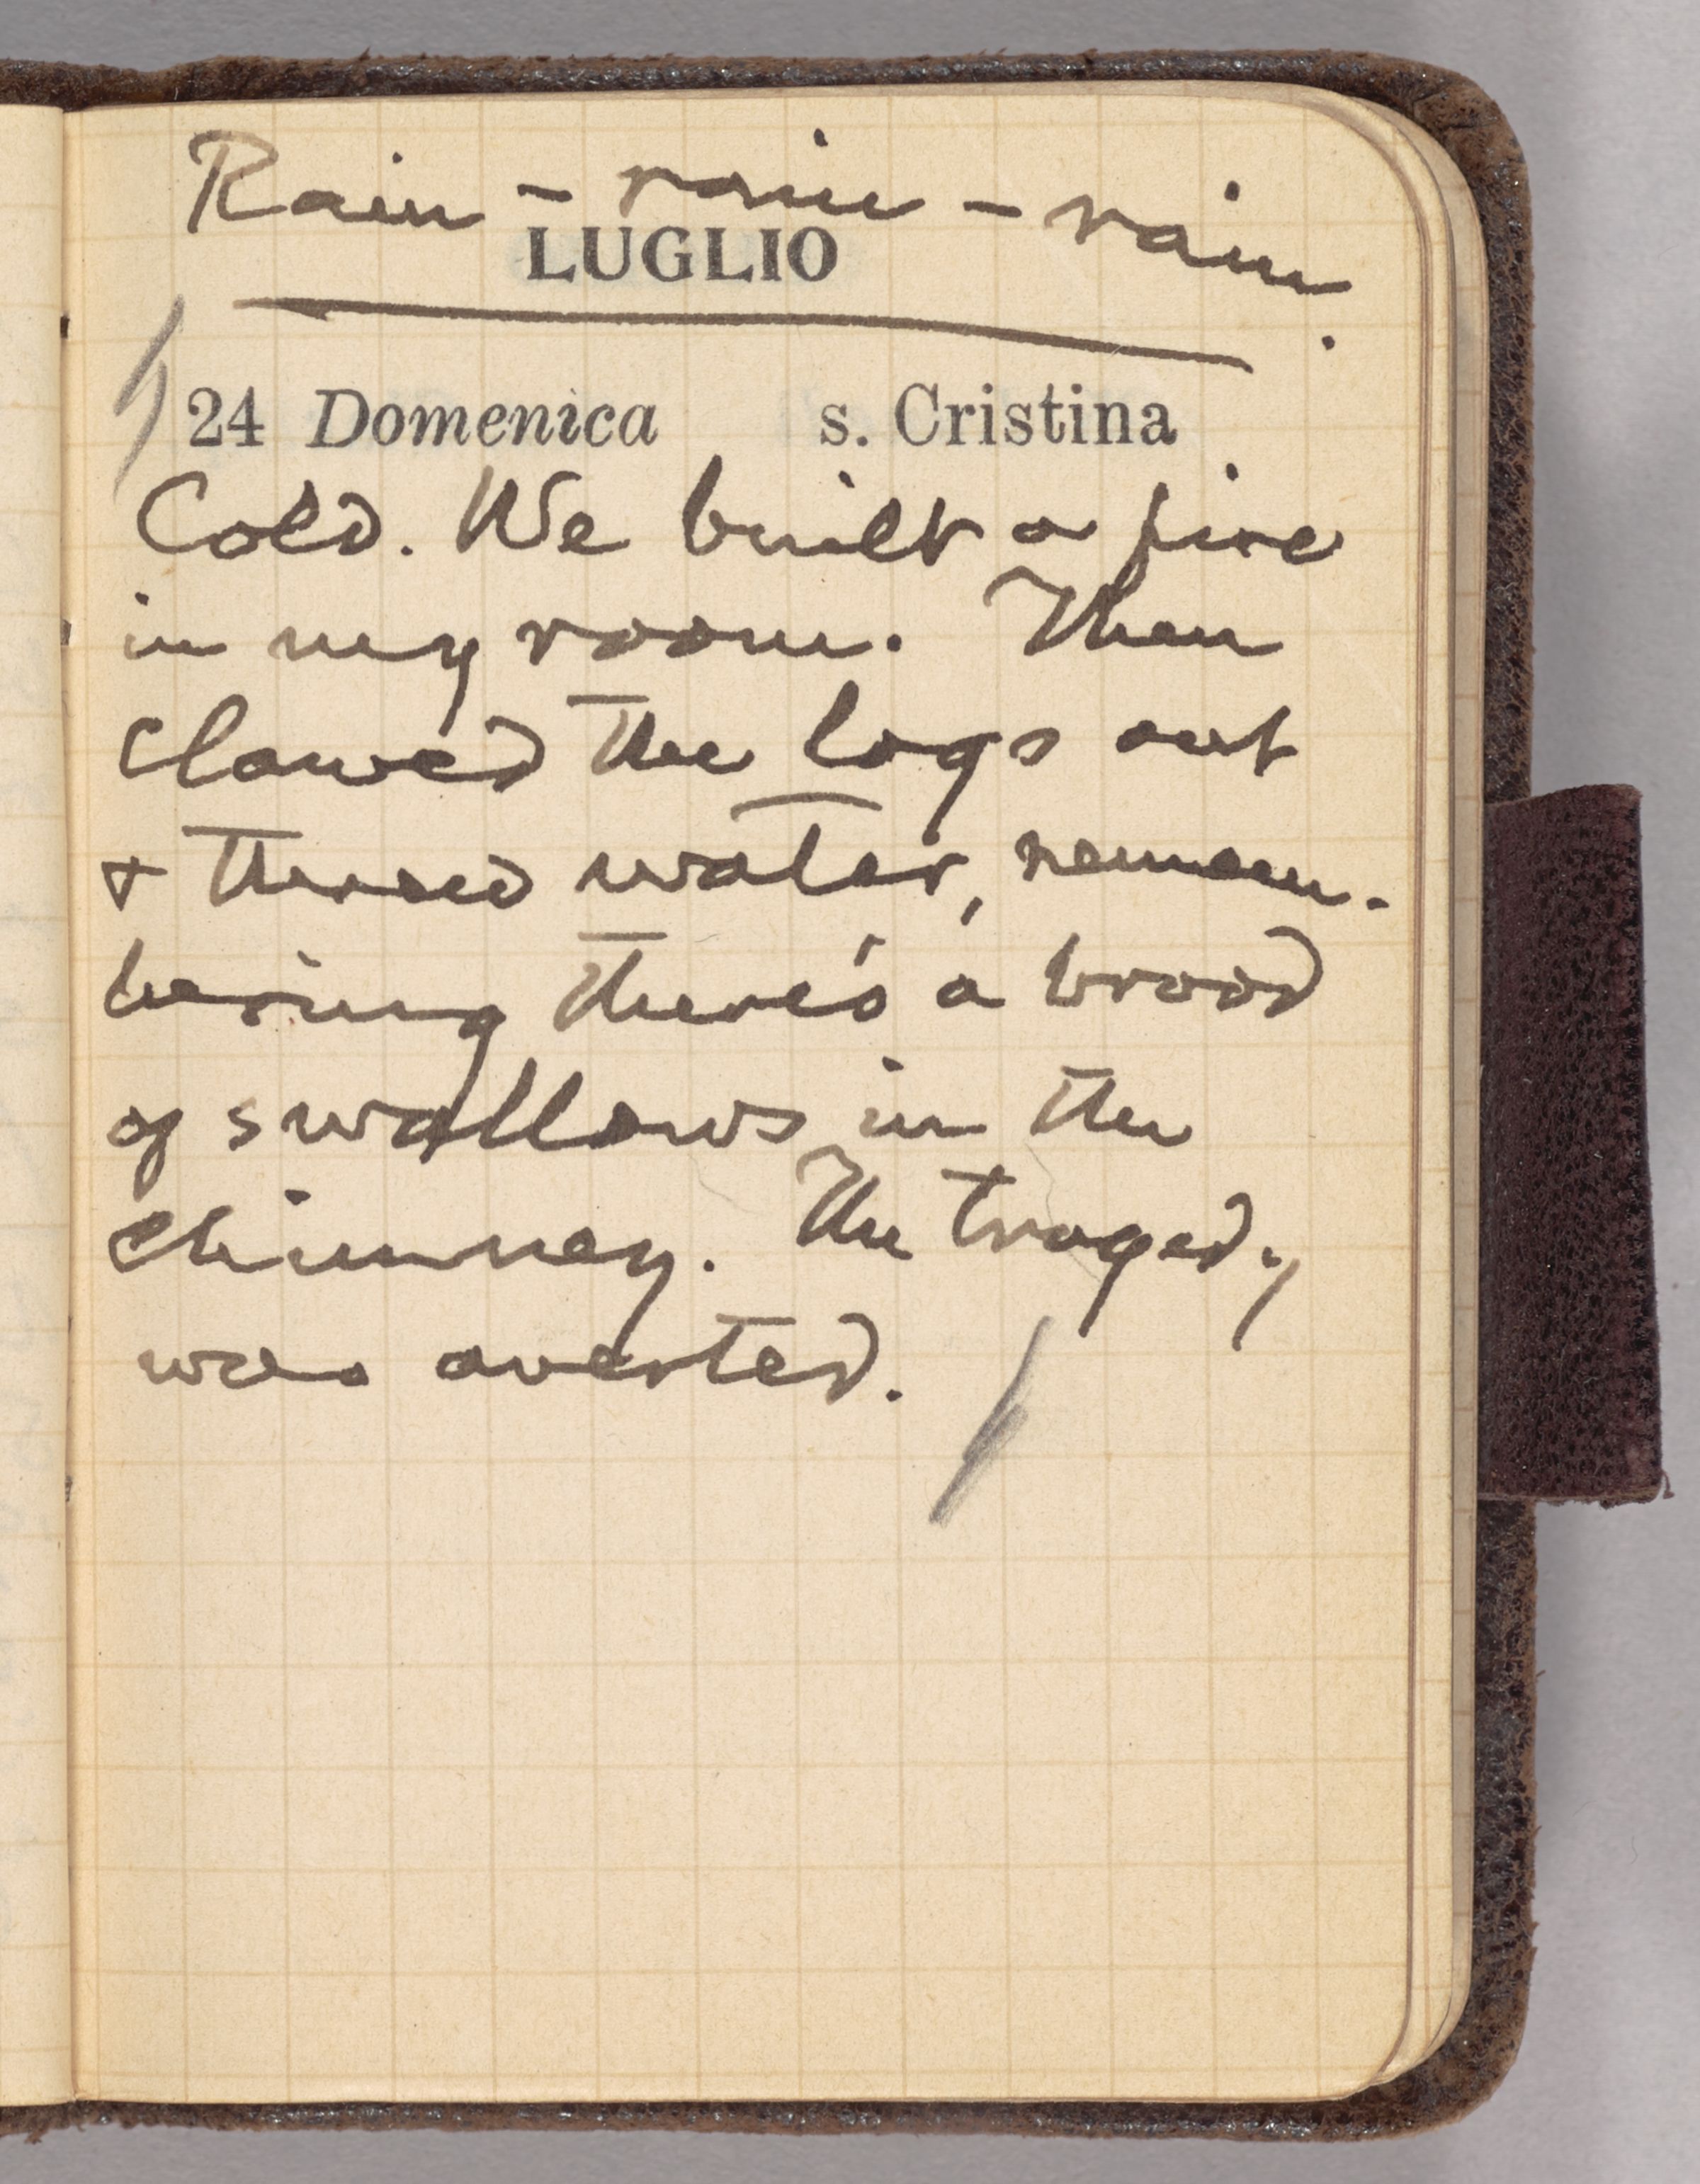 Rain - rain - rain.
LUGLIO
24 Domenica s. Cristina
Cold. We built a fire
in my room. Then
clawed the logs out
& threw water, remem-
bering there's a brood
of swallows in the
chimney. The tragedy
was averted.